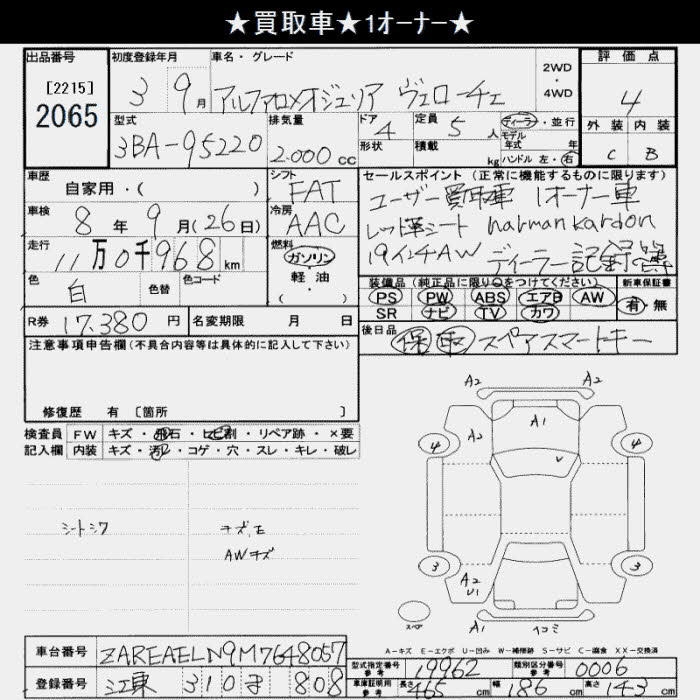 ★買取車★1オーナー★
出品番号 初度登録年月 車名・グレード 評価点
[2215]
2065
3 9月 アルファロメオジュリア ヴェローチェ 2WD・4WD 4
型式 排気量 ドア 4 定員 5人 ディーラー・並行 外装 内装
3BA-95220 2.000cc 形状 積載 kg モデル年式 年 ハンドル 左・右 C B
車歴 シフト セールスポイント(正常に機能するものに限ります)
自家用・( ) FAT ユーザー買取車 1オーナー車
車検 8年9月(26日) 冷房 AAC レッド革シート harman kardon
走行 11万0千968km 燃料 ガソリン・軽油・( ) 19インチAW ディーラー記録簿
色 白 色替 色コード
装備品(純正品に限り○をつけてください) 新車保証書
PS PW ABS エアB AW 有・無
SR ナビ TV カワ
R券 17.380円 名変期限 月 日
後日品 保 取 スペアスマートキー
注意事項申告欄(不具合内容等は具体的に記入して下さい)
修復歴 有 [箇所 ]
検査員 FW キズ・飛石・ヒビ割・リペア跡・×要
記入欄 内装 キズ・汚レ・コゲ・穴・スレ・キレ・破レ
シートシワ
キズ、モ
AWキズ
A2 A2
A1
4 A2 4
3 3
A2
U1
スペア
A1 ヘコミ
A-キズ E-エクボ U-凹み W-補修跡 S-サビ C-腐食 XX-交換済
車台番号 ZAREAELN9M7648057
型式指定番号 参考 19962 類別区分番号 参考 0006
登録番号 江東 310 ま 808
車庫証明用 参考 長さ 465cm 幅 186cm 高さ 143cm